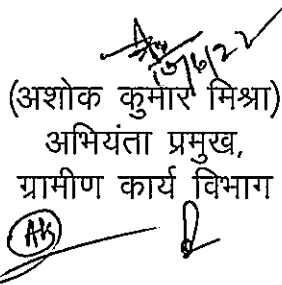 15/6/22
(अशोक कुमार मिश्रा)
अभियंता प्रमुख,
ग्रामीण कार्य विभाग